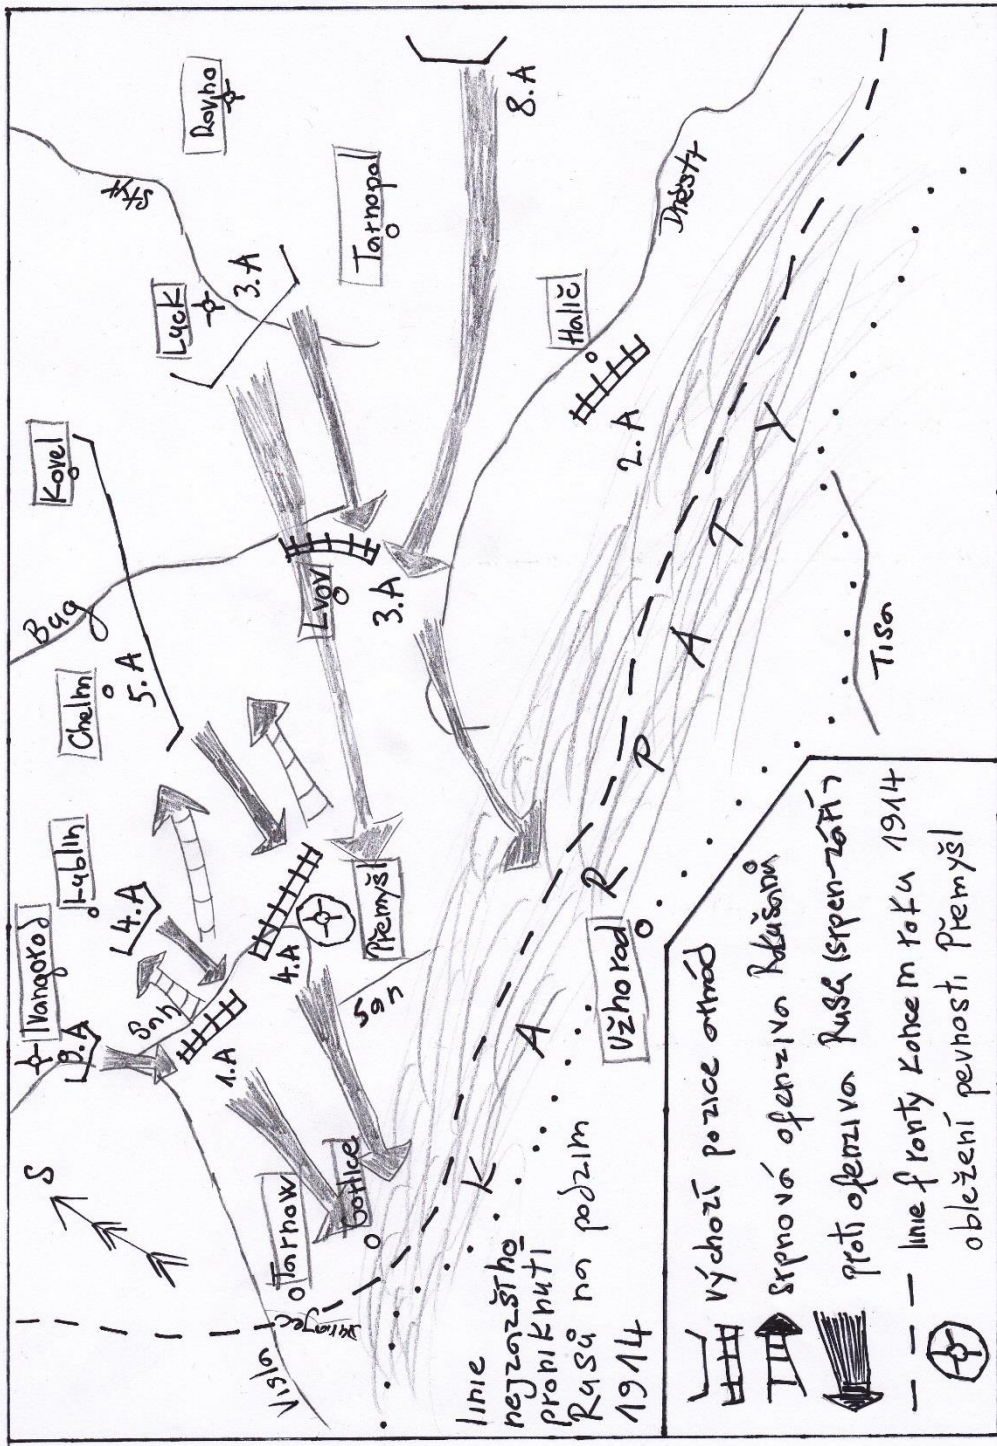 S
Visla
Dunajec
Tarnow
Gorlice
Ivangorod
9.A
San
1.A
Lublin
4.A
4.A
San
Přemyšl
Chelm
5.A
Bug
Kovel
Lvov
3.A
Luck
3.A
Styr
Rovno
Tarnopol
8.A
Halič
2.A
Dněstr
KARPATY
Užhorod
Tisa
linie
nejzazšího
proniknutí
Rusů na podzim
1914
výchozí pozice armád
srpnová ofenziva Rakušanů
proti ofenziva Rusů (srpen-září)
linie fronty koncem roku 1914
obležení pevnosti Přemyšl